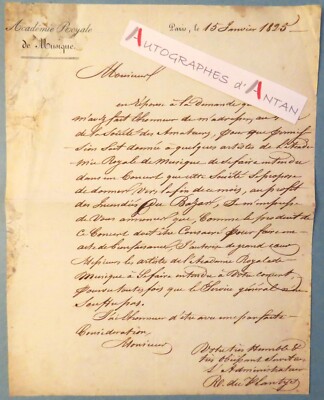 Académie Royale
de Musique.
Paris, le 15 Janvier 1825
AUTOGRAPHES d'ANTAN
Monsieur
en Réponse à la Demande que
m'avez fait l'honneur de m'adresser, au
de la Société des Amateurs, pour que permis-
sion soit donnée à quelques artistes de l'Acadé-
mie Royale de Musique de se faire entendre
dans un Concert que cette Société se propose
de donner vers la fin de ce mois, au profit
des Incendiés du Bazar, je m'empresse
de Vous annoncer que, Comme le produit de
ce Concert doit être Consacré pour faire un
acte de bienfaisance, j'autorise de grand cœur
les artistes de l'Académie Royale de
Musique à se faire entendre à votre concert,
pourvu toutefois que le Service général n'en
Souffre pas.
J'ai l'honneur d'être avec une parfaite
Considération
Monsieur
Votre très Humble &
très obéissant Serviteur
L'Administrateur
R. du Plantys